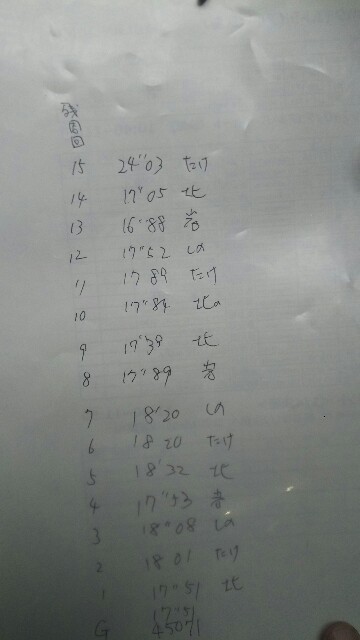 残周回
15 24"03 たけ
14 17"05 北
13 16"88 岩
12 17"52 しの
11 17 89 たけ
10 17"84 北の
9 17"39 北
8 17"89 岩
7 18'20 しの
6 18 20 たけ
5 18'32 北
4 17"53 岩
3 18"08 しの
2 18 01 たけ
1 17"51 北
17"51
G 45071